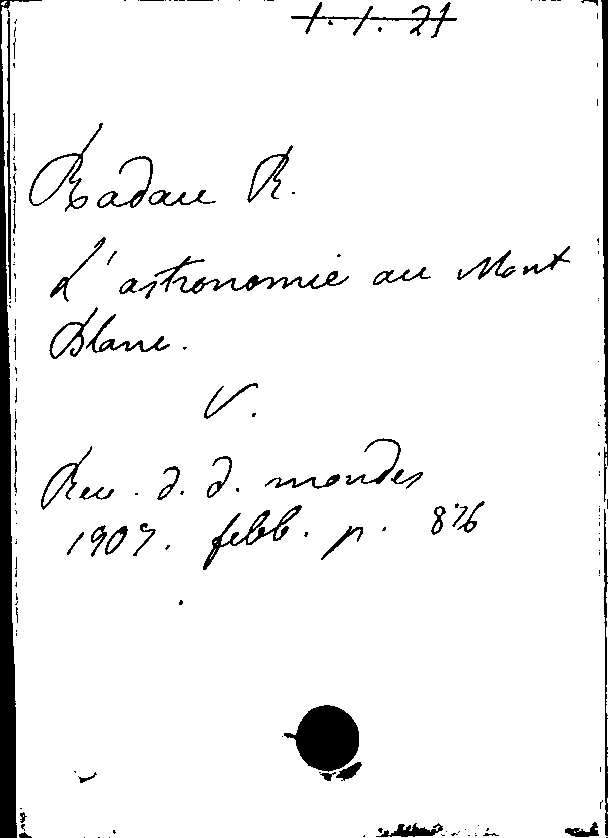 1. 1. 21
Radau R.
L'astronomie au Mont
Blanc.
V.
Rev. d. d. mondes
1907. febb. p. 876